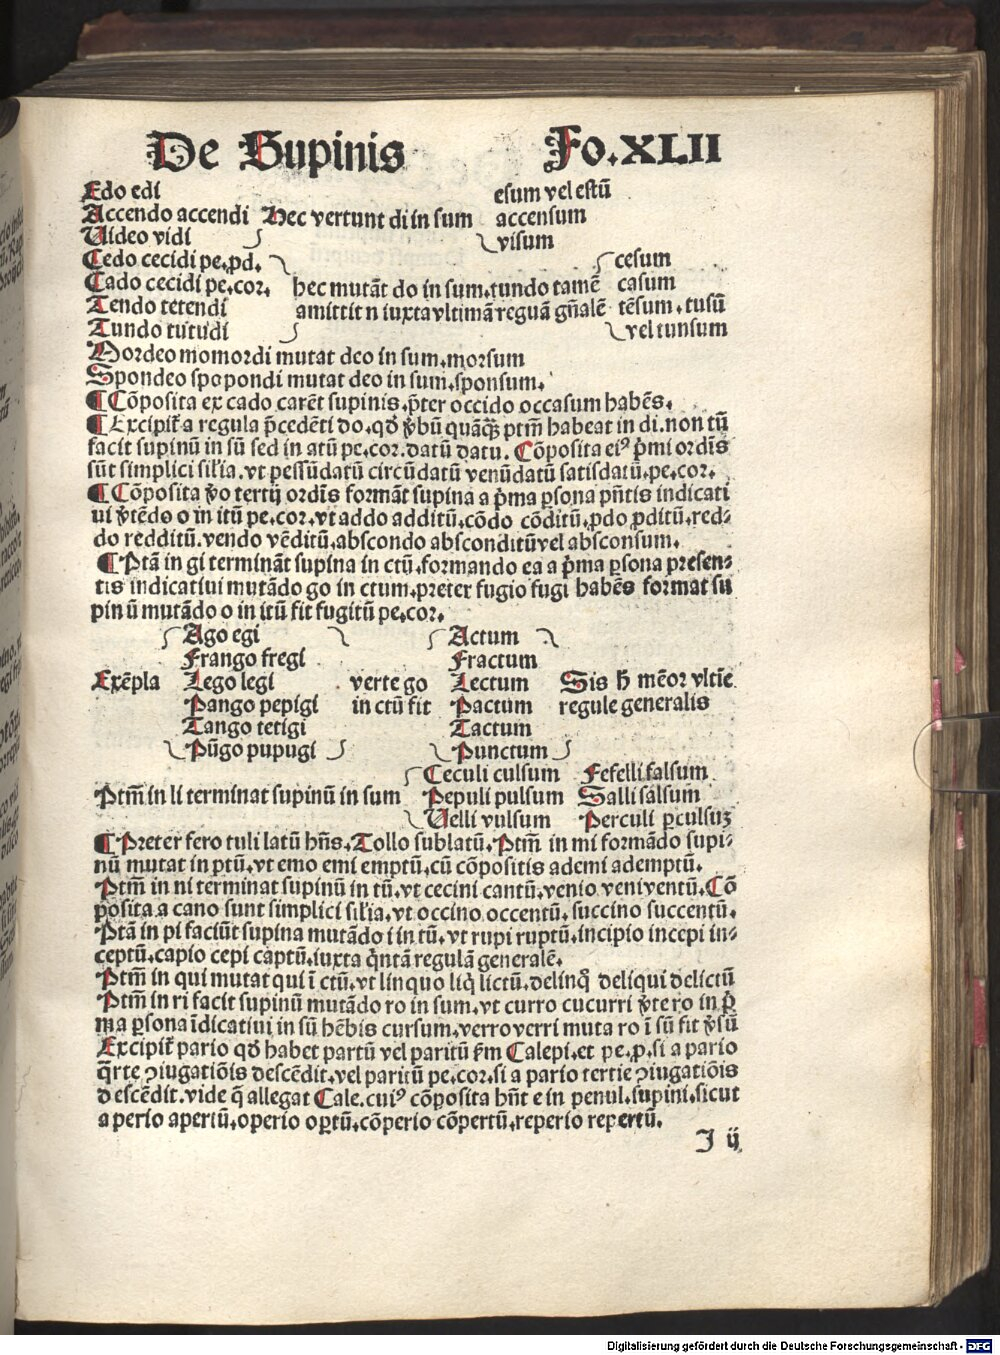 De Supinis Fo.XLII
Edo edi esum vel estū
Accendo accendi Hec vertunt di in sum accensum
Video vidi visum
Cedo cecidi pe.pd. cesum
Cado cecidi pe.cor. hec mutāt do in sum.tundo tamē casum
Tendo tetendi amittit n iuxta vltimā reguā gn̄alē tēsum.tusū
Tundo tutudi vel tunsum
Mordeo momordi mutat deo in sum.morsum
Spondeo spopondi mutat deo in sum.sponsum.
¶ Cōposita ex cado carēt supinis.p̄ter occido occasum habēs.
¶ Excipit̄ a regula p̄cedēti do.qd̄ v̄bū quāq̄ꝫ ptm̄ habeat in di.non tū
facit supinū in sū sed in atū pe.cor.datū datu. Cōposita eiꝰ p̄mi ordīs
sūt simplici sil̄ia.vt pessūdatū circūdatū venūdatū satisdatū.pe.cor.
¶ Cōposita v̄o tertij ordīs formāt supina a p̄ma ꝑsona p̄ntis indicati
ui v̄tēdo o in itū pe.cor.vt addo additū.cōdo cōditū.ꝓdo ꝓditū.red⸗
do redditū.vendo vēditū.abscondo absconditū vel absconsum.
¶ Ptā in gi termināt supina in ctū.formando ea a p̄ma ꝑsona presen⸗
tis indicatiui mutādo go in ctum.preter fugio fugi habēs format su
pinū mutādo o in itū fit fugitū pe.cor.
Ago egi Actum
Frango fregi Fractum
Exēpla Lego legi verte go Lectum Sis h̄ mēor vltīe
Pango pepigi in ctū fit Pactum regule generalis
Tango tetigi Tactum
Pūgo pupugi Punctum
Ceculi culsum Fefelli falsum
Ptm̄ in li terminat supinū in sum Pepuli pulsum Salli salsum
Velli vulsum Perculi ꝑculsuꝫ
¶ Preter fero tuli latū hn̄s.Tollo sublatū.Ptm̄ in mi formādo supi⸗
nū mutat in ptū.vt emo emi emptū.cū cōpositis ademi ademptū.
Ptm̄ in ni terminat supinū in tū.vt cecini cantū.venio veni ventū.Cō
posita a cano sunt simplici sil̄ia.vt occino occentū.succino succentū.
Ptā in pi faciūt supina mutādo i in tū.vt rupi ruptū.incipio incepi in⸗
ceptū.capio cepi captū.iuxta q̄ntā regulā generalē.
Ptm̄ in qui mutat qui ī ctū.vt linquo liq̄ lictū.delinq̄ deliqui delictū
Ptm̄ in ri facit supinū mutādo ro in sum.vt curro cucurri v̄te ro in p̄
ma ꝑsona īdicatiui in sū hēbis cursum.verro verri muta ro ī sū fit v̄sū
Excipit̄ pario qd̄ habet partū vel paritū f̄m Calepi.et pe.p.si a pario
q̄rte ꝯiugatiōis descēdit.vel paritū pe.cor.si a pario tertie ꝯiugatiōis
descēdit.vide q̄ allegat Cale.cuiꝰ cōposita hn̄t e in penul.supini.sicut
aperio apertū.operio oꝑtū.cōperio cōpertū.reperio repertū.
J ij
Digitalisierung gefördert durch die Deutsche Forschungsgemeinschaft - DFG